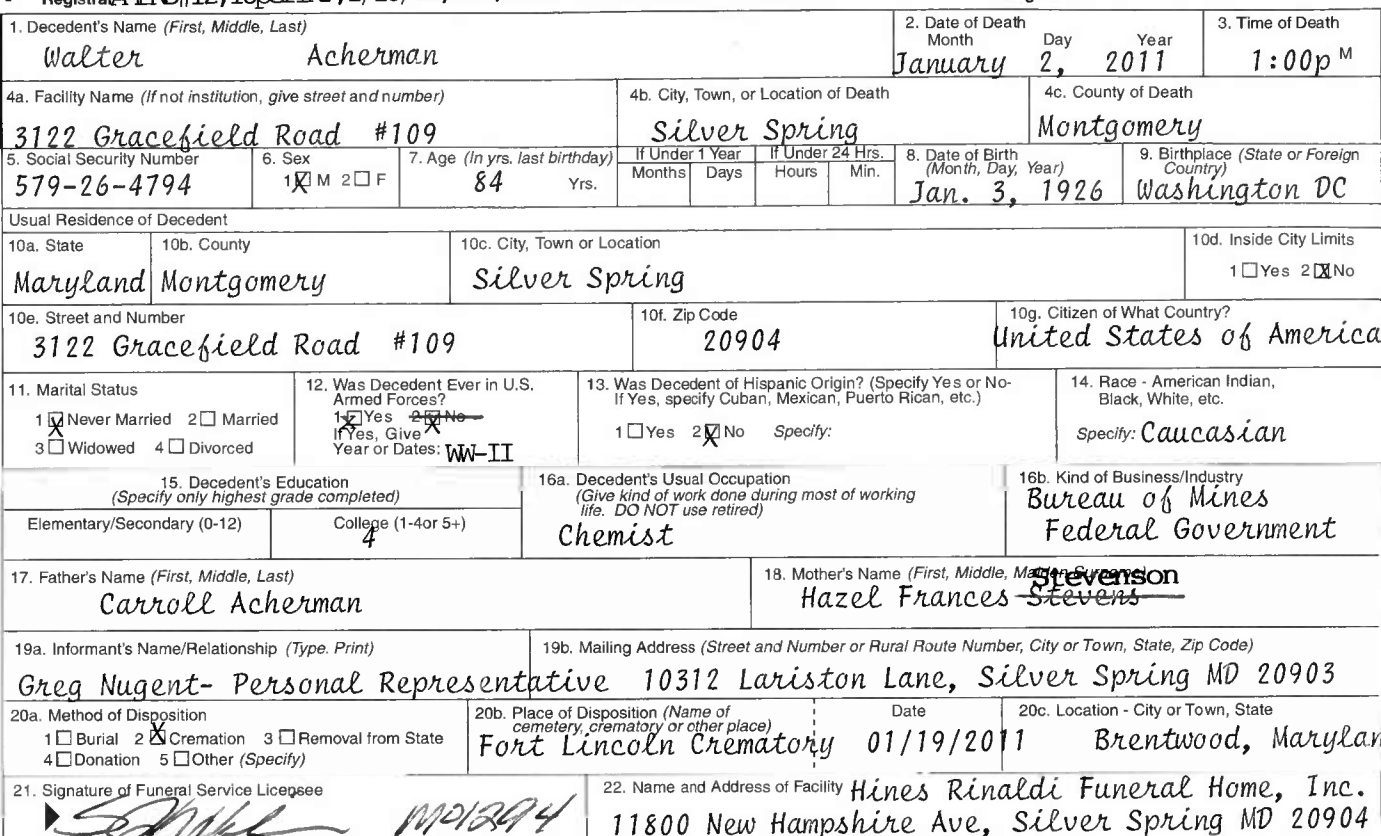 Registrar
1. Decedent's Name (First, Middle, Last)
Walter Acherman
2. Date of Death
Month Day Year
January 2, 2011
3. Time of Death
1:00p M
4a. Facility Name (If not institution, give street and number)
3122 Gracefield Road #109
4b. City, Town, or Location of Death
Silver Spring
4c. County of Death
Montgomery
5. Social Security Number
579-26-4794
6. Sex
1 X M 2 ☐ F
7. Age (In yrs. last birthday)
84 Yrs.
If Under 1 Year
Months Days
If Under 24 Hrs.
Hours Min.
8. Date of Birth
(Month, Day, Year)
Jan. 3, 1926
9. Birthplace (State or Foreign
Country)
Washington DC
Usual Residence of Decedent
10a. State
Maryland
10b. County
Montgomery
10c. City, Town or Location
Silver Spring
10d. Inside City Limits
1 ☐ Yes 2 X No
10e. Street and Number
3122 Gracefield Road #109
10f. Zip Code
20904
10g. Citizen of What Country?
United States of America
11. Marital Status
1 X Never Married 2 ☐ Married
3 ☐ Widowed 4 ☐ Divorced
12. Was Decedent Ever in U.S.
Armed Forces?
1 X Yes 2 X No
If Yes, Give
Year or Dates: WW-II
13. Was Decedent of Hispanic Origin? (Specify Yes or No-
If Yes, specify Cuban, Mexican, Puerto Rican, etc.)
1 ☐ Yes 2 X No Specify:
14. Race - American Indian,
Black, White, etc.
Specify: Caucasian
15. Decedent's Education
(Specify only highest grade completed)
Elementary/Secondary (0-12)
College (1-4or 5+)
4
16a. Decedent's Usual Occupation
(Give kind of work done during most of working
life. DO NOT use retired)
Chemist
16b. Kind of Business/Industry
Bureau of Mines
Federal Government
17. Father's Name (First, Middle, Last)
Carroll Acherman
18. Mother's Name (First, Middle, Maiden Surname)
Stevenson
Hazel Frances Stevens
19a. Informant's Name/Relationship (Type. Print)
Greg Nugent- Personal Representative
19b. Mailing Address (Street and Number or Rural Route Number, City or Town, State, Zip Code)
10312 Lariston Lane, Silver Spring MD 20903
20a. Method of Disposition
1 ☐ Burial 2 X Cremation 3 ☐ Removal from State
4 ☐ Donation 5 ☐ Other (Specify)
20b. Place of Disposition (Name of
cemetery, crematory or other place)
Fort Lincoln Crematory
Date
01/19/2011
20c. Location - City or Town, State
Brentwood, Marylan
21. Signature of Funeral Service Licensee
M01294
22. Name and Address of Facility Hines Rinaldi Funeral Home, Inc.
11800 New Hampshire Ave, Silver Spring MD 20904